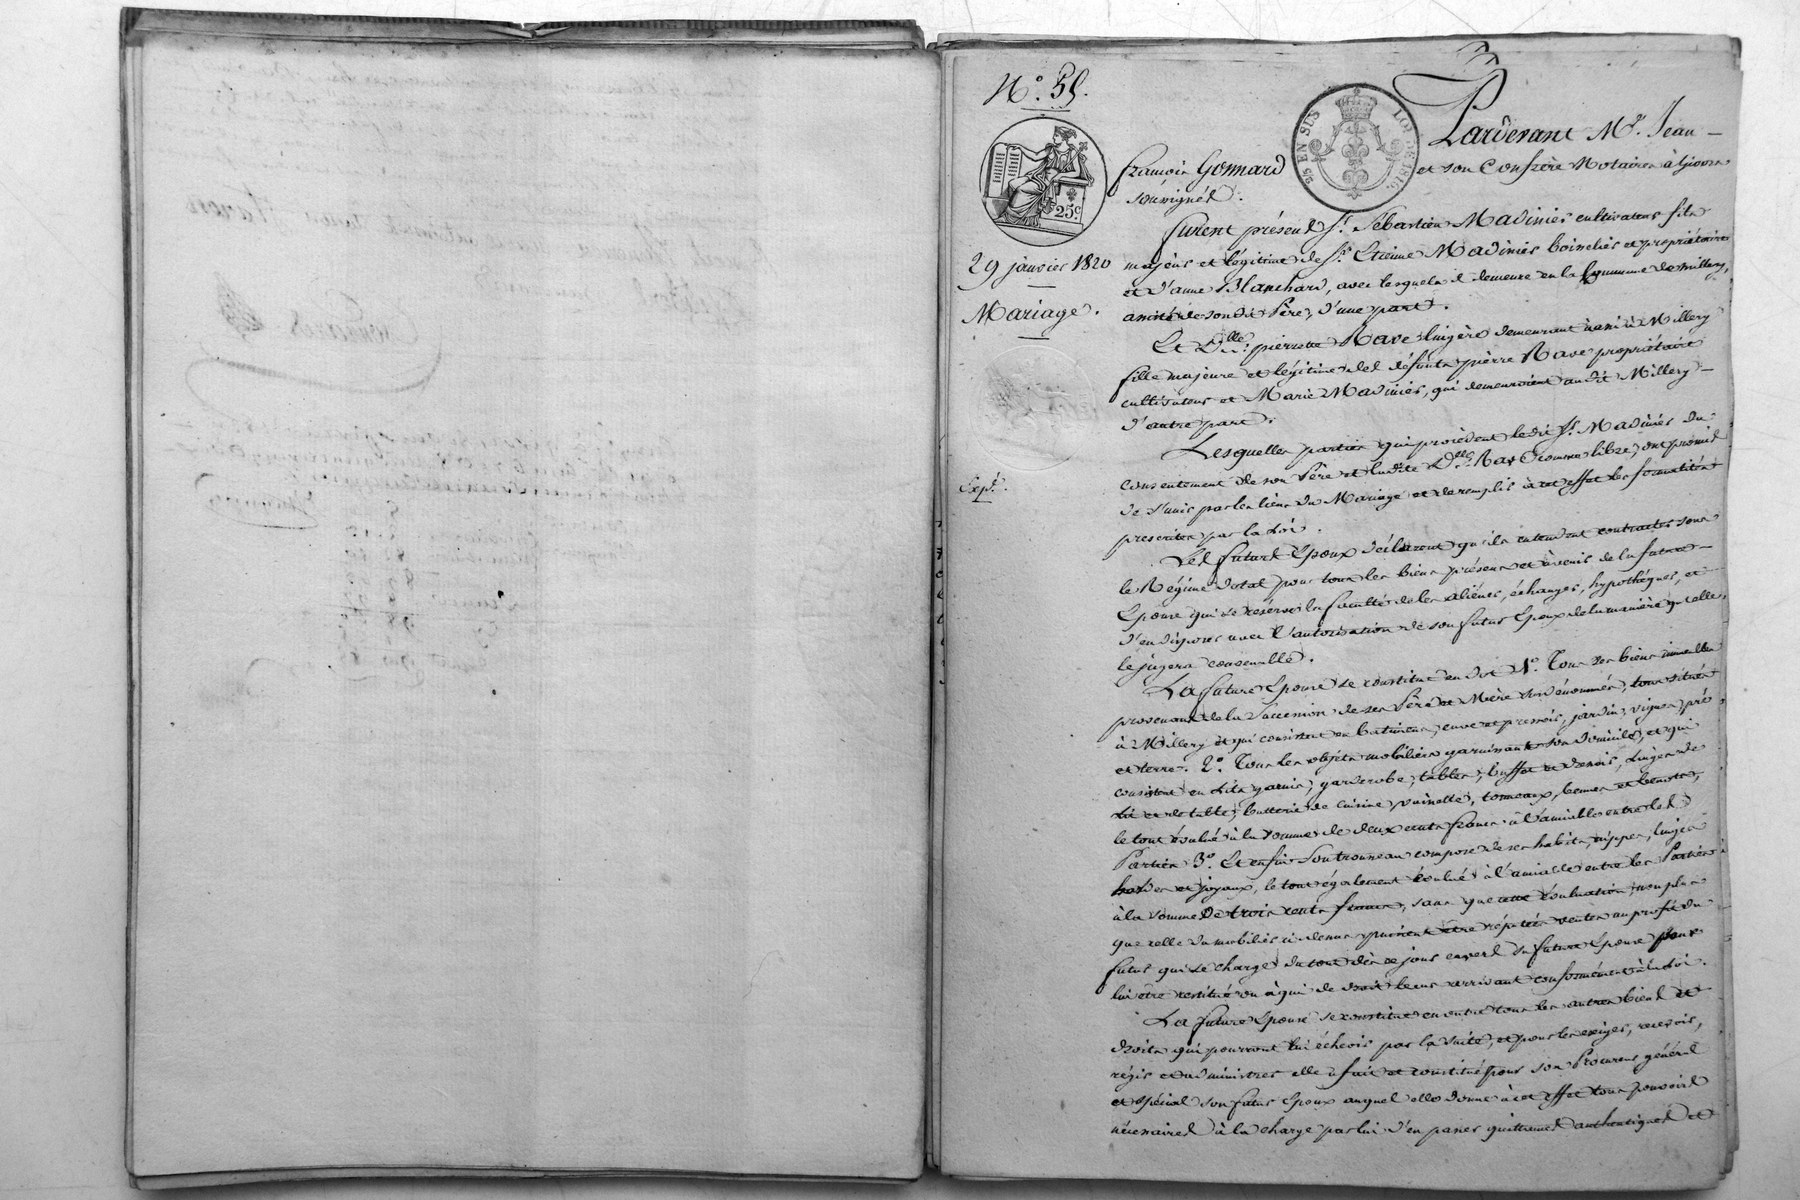 N.° 55.
EN SUS
LOI DE 1816.
25c
Pardevant M.e Jean
françois Gonnard et son Confrère Notaires à Givors
soussignés.
29 janvier 1820
Mariage.
Exp.é
furent présens S.r Sébastien Madinier cultivateur fils
majeur et légitime de S.r Etienne Madinier boirelier et propriétaire
et d'anne Blanchard, avec lesquels il demeure en la Commune de millery,
assisté de son dit Père, d'une part.
Et D.lle pierrette Rave lingère demeurant aussi à Millery
fille majeure et légitime des défunts pierre Rave propriétaire
cultivateur et Marie Madinier, qui demeuroient audit Millery
d'autre part.
Lesquelles parties qui procèdent ledit S.r Madinier du
consentement de son Père et ladite D.lle Rave comme libre, ont promis
de s'unir par les liens du Mariage et de remplir à cet effet les formalités
prescrites par la Loi.
Les futurs Epoux déclarent qu'ils entendent contracter sous
le Régime dotal pour tous les biens présens et à venir de la future
Epouse qui se réserve la faculté de les aliéner, échanger, hypothéquer, et
d'en disposer avec l'autorisation de son futur Epoux de la manière qu'elle
le jugera convenable.
La future Epouse se constitue en dot 1.° Tous ses biens immeubles
provenant de la Succession de ses Père et Mère susdénommés, tous situés
à Millery et qui consistent en batimens, cuve et pressoir, jardin, vignes, pré
et terre. 2.° Tous les objets mobiliers garnissant son domicile, et qui
consistent en Lits garnis, garderobe, tables, buffet et dressoir, Linges de
Lit et de table, batterie de cuisine vaisselle, tonneaux, bennes et bennots,
le tout évalué à la somme de deux cents francs à l'amiable entre les
Parties 3.° Et enfin Son trousseau composé de ses habits, nippes, linges
hardes et joyaux, le tout également évalué à l'amiable entre les Parties
à la somme De trois cents francs, sans que cette évaluation, non plus
que celle du mobilier ci dessus puissent être réputées ventes au profit du
futur qui se charge du tout dès ce jour envers sa future Epouse pour
lui être restitué ou à qui de droit le cas arrivant conformément à la Loi.
La future Epouse se constitue en outre tous les autres biens et
droits qui pourront lui échoir par la suite, et pour les exiger, recevoir,
régir et administrer elle a fait et constitué pour son Procureur général
et spécial son futur Epoux auquel elle donne à cet effet tous pouvoirs
nécessaires à la charge par lui d'en passer quittances authentiques et